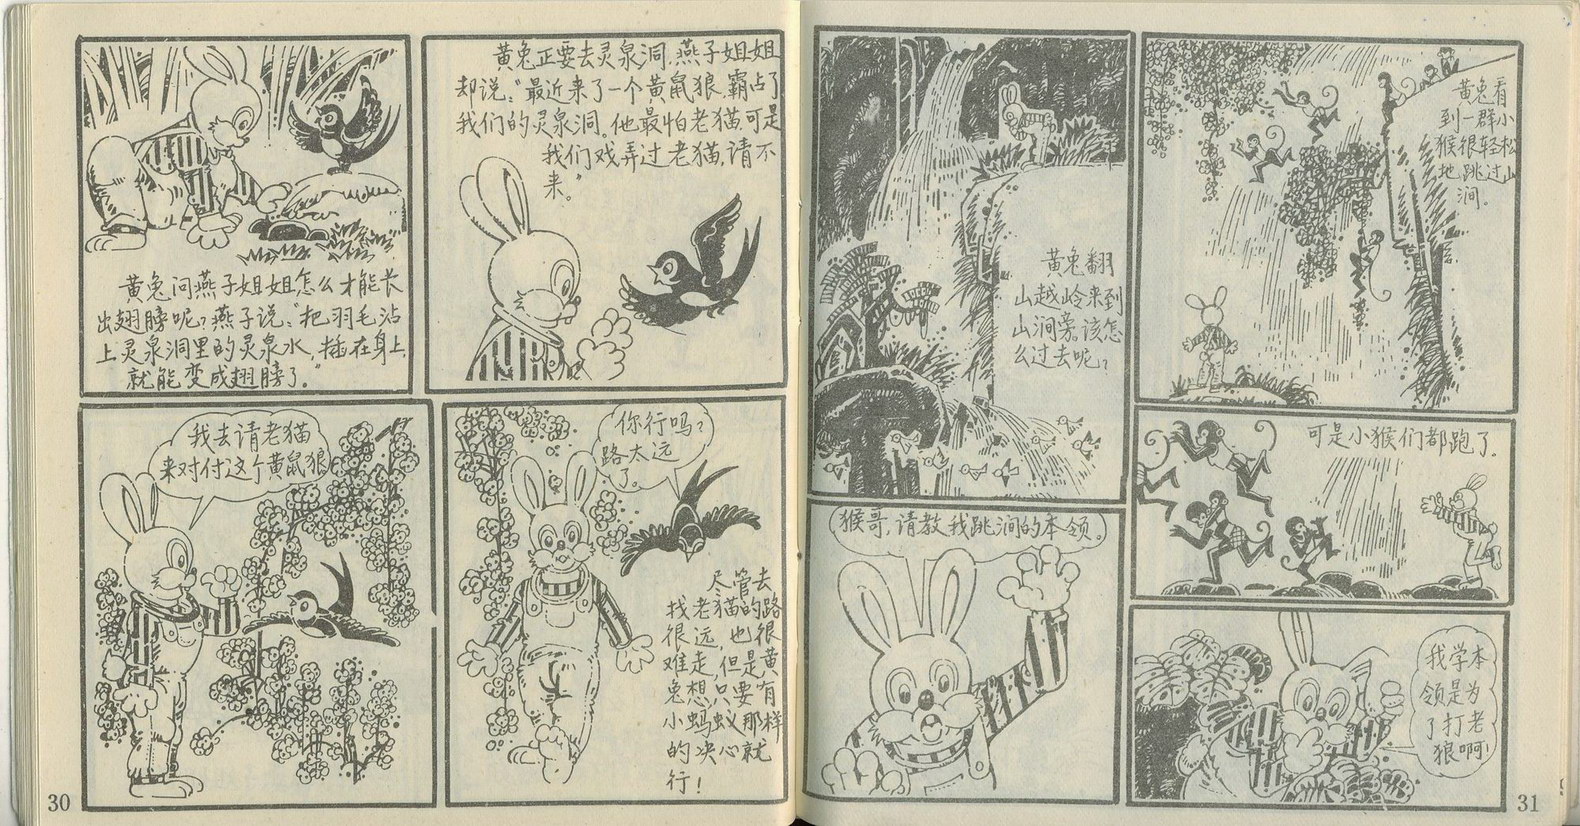 黄兔问燕子姐姐怎么才能长
出翅膀呢？燕子说：“把羽毛沾
上灵泉洞里的灵泉水，插在身上，
就能变成翅膀了。”
黄兔正要去灵泉洞，燕子姐姐
却说：“最近来了一个黄鼠狼，霸占了
我们的灵泉洞，他最怕老猫，可是
我们戏弄过老猫，请不
来。”
我去请老猫
来对付这个黄鼠狼
你行吗？
路太远
了。
尽管去
找老猫的路
很远，也很
难走，但是黄
兔想只要有
小蚂蚁那样
的决心就
行！
30
黄兔翻
山越岭来到
山涧旁。该怎
么过去呢？
黄兔看
到一群小
猴很轻松
地跳过山
涧。
猴哥，请教我跳涧的本领。
可是小猴们都跑了。
我学本
领是为
了打老
狼啊！
31